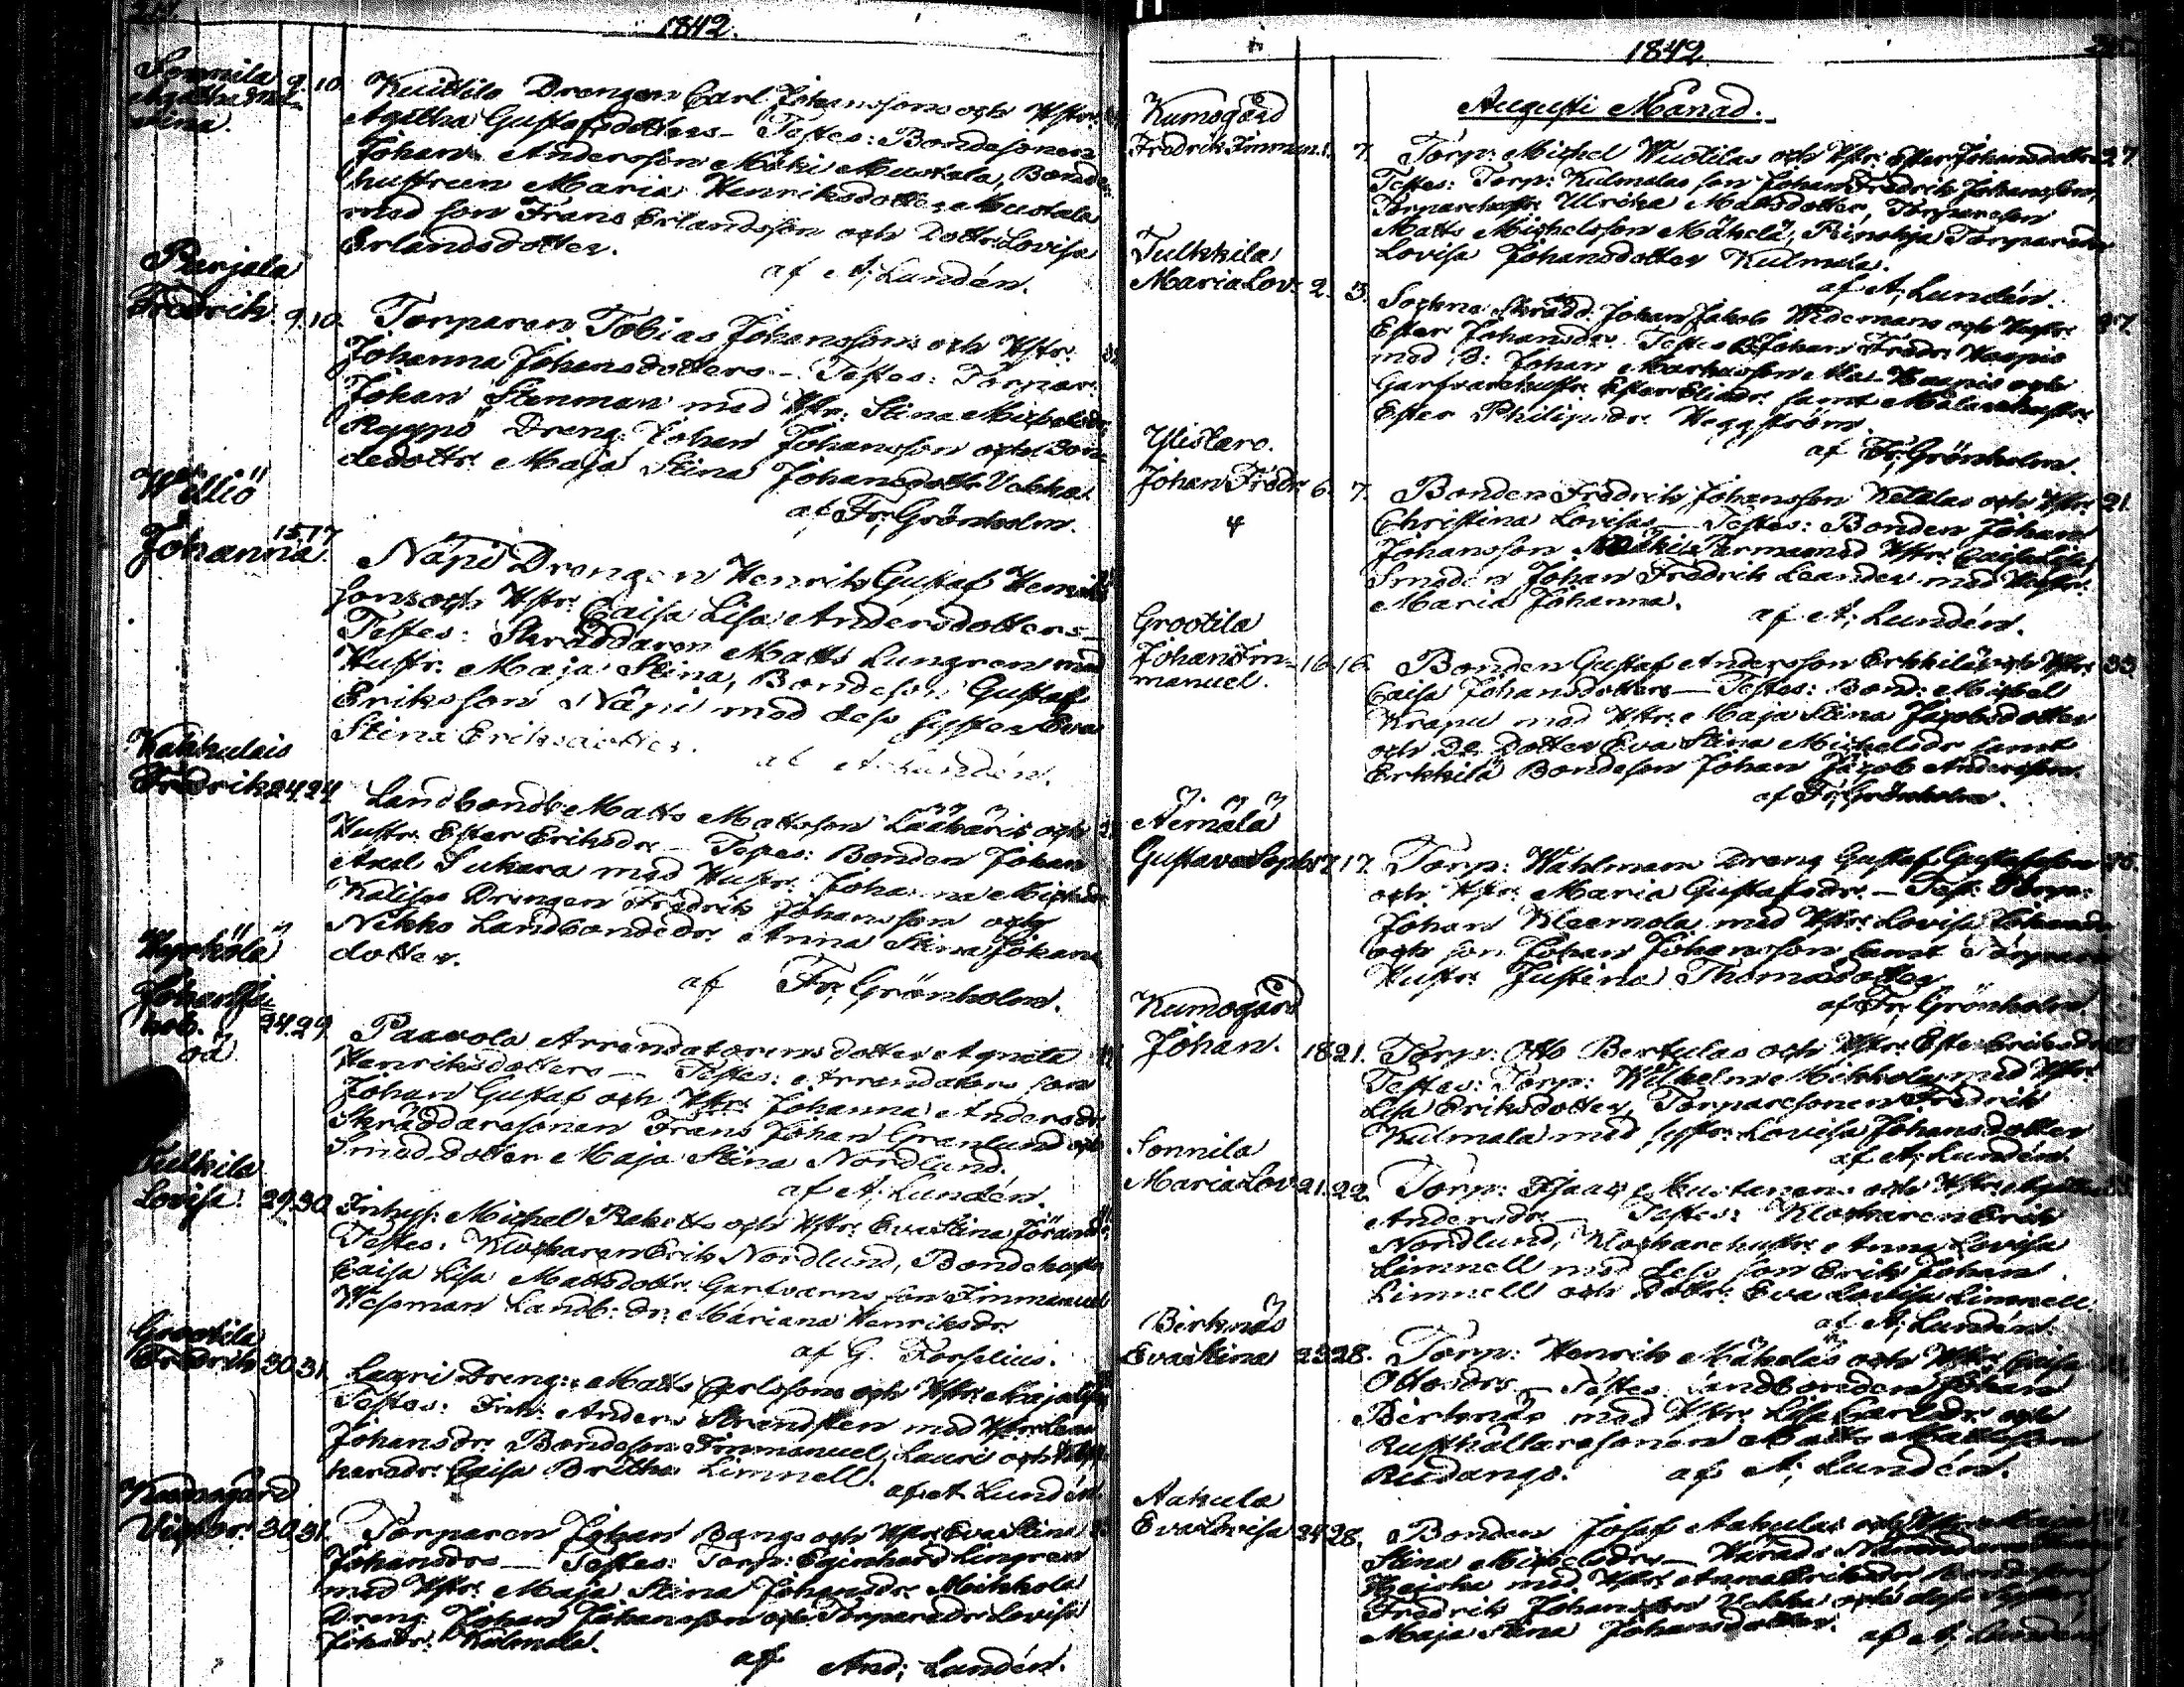 1842.
Sonnila 9. 10. Kuittila Drengen Carl Johanssons och Hstr:
Agatha
stina. Agatha Gustafsdotters — Testes: Bondesonen
Johan Andersson Mäki Mustala, Bonde-
hustrun Maria Henriksdotter Mustala
med son Frans Erlandsson och Dottr: Lovisa
Erlandsdotter.
af A; Lundén.
Purjala
Fredrik. 9. 10. Torparen Tobias Johanssons och Hstr:
Johanna Johansdotters — Testes: Torpar:
Johan Stenman med Hstr: Stina Michelsdr
Dreng: Johan Johansson och Bon-
dedottr: Maja Stina Johansdottr
af Fr; Grönholm.
Johanna. 15. 17. Näpi Drengen Henrik Gustaf Henriks
sons och Hstr: Caisa Lisa Andersdotters —
Testes: Skräddaren Matts Lungren med
Hustr: Maja Stina, Bondeson Gustaf
Eriksson Näpi med dess syster Eva
Stina Eriksdotter.
af A; Lundén.
Kakkulais
Fredrik 24. 24. Landbonde Matts Mattsson och
Hustr: Ester Eriksdr: — Testes: Bonden Johan
Axel Sukara med Hustr: Johanna Michelsdr
Drengen Fredrik Johansson och
Landbondedr: Anna Stina Johans
dotter.
af Fr; Grönholm.
Johan Ja-
kob. 24. 29. Paavola Arrendatorens dotter Agneta
oä. Henriksdotters — Testes: Arrendators son
Johan Gustaf och Hstr: Johanna Andersdr
Skräddaresonen Frans Johan Granlund och
Smeds dotter Maja Stina Nordlund.
af A; Lundén.
Tulkila
Lovisa. 29. 30. Inhys: Michel Raketts och Hstr: Eva Stina Johansdr
Testes: Klockaren Erik Nordlund, Bondehustr
Caisa Lisa Mattsdottr: Garfvarens son Immanuel
Wesman Landb: dr: Mariana Henriksdr
af G. Forselius.
Grootila
Fredrik 30. 31. Lauri Dreng: Matts Carlssons och Hstr: Maja Lisa
Testes: Inh: Anders Strandsten med Hstr: Lena
Johansdr: Bondeson Immanuel Lauri och Kloc-
karedr: Caisa Britha Limnell.
af A. Lundén
Kumogård
Victor. 30. 31. Torparen Johan Bangs och Hstr: Eva Stina
Johansdrs — Testes: Torp: Eginhard Lingren
med Hstr: Maja Stina Johansdr: Mikkola
Dreng Johan Johansson och Torparedr Lovisa
Johsdr: Kulmala.
af And; Lundén.
1842.
Augusti Månad.
Kumogård
Fredrik Imman: 1. 7. Torp: Michel Wuotilas och Hstr: Ester Johansdotters 27.
Testes: Torp: Kulmalas son Johan Fredrik Johansson,
Torparehustr: Ulrika Mattsdotter, Torpareson
Matts Michelsson Mäkelä, Torparedr
Lovisa Johansdotter Kulmala.
af A; Lundén.
Tulkkila
Maria Lov: 2. 3. Sockne Skrädd: Johan Jakob Widemans och Hustr: 37.
Ester Johansdr: Testes B: Johan Fredr: Haapio
med B: Johan Markusson Ala-Haapio och
Garfvarehustr: Ester Eliadr: samt Målarehustr:
Ester Philipsdr: Heggström.
af Fr; Grönholm.
Ylistaro.
Johan Fredr: 6. 7. Bonden Fredrik Johansson Ketalas och Hstr: 21.
Christina Lovisas — Testes: Bonden Johan
Johansson med Hstr: Caisa Lisa,
Smeden Johan Fredrik Leander med Hustr:
Maria Johanna.
af A; Lundén.
Grootila
Johan Im-
manuel. 16. 16. Bonden Gustaf Andersson Erkkiläs och Hstr: 33.
Caisa Johansdotters — Testes: Bond: Michel
Krapu med Hstr: Maja Stina Jacobsdotter
och De. Dotter Eva Stina Michelsdr samt
Erkkilä Bondeson Johan Jacob Andersson.
af Fr; Grönholm.
Äemälä
Gustava Soph: 17. 17. Torp: Wahlmans Dreng Gustaf Gustafsson 26.
och Hstr: Maria Gustafsdr: — Test: Torp:
Johan Kleemola med Hstr: Lovisa Johansdr
och son Johan Johansson samt Torpare
Hustr: Justina Thomasdotter
af Fr; Grönholm
Kumogård
Johan. 18. 21. Torp: Otto Bertulas och Hstr: Ester Eriksdr
Testes: Torp: Wilhelm Mikkola med Hstr:
Lisa Eriksdotter, Torparesonen Fredrik
Kulmala med syster Lovisa Johansdotter
af A; Lundén.
Sonnila
Maria Lov 21. 22. Torp: Isaac Mustanens och Hstr: Agatha
Andersdr: — Testes: Klockaren Erik
Nordlund, Klockarehustr: Anna Lovisa
Limnell med dess son Erik Johan
Limnell och Dottr: Eva Lovisa Limnell.
af A; Lundén.
Birknäs
Eva Stina 23. 28. Torp: Henrik Mäkeläs och Hstr: Caisa
Ottosdrs — Testes Landbonden Johan
Birknäs med Hstr: Lisa Carlsdr: och
Rusthållaresonen Matts Mattsson
Ridangs. af A; Lundén.
Aakula
Eva Lovisa 24. 28. Bonden Josef Aakulas och Hstr: Maja
Stina Michelsdrs — Härads
med Hstr: Anna Eriksdr
Fredrik Johansson och dess syster
Maja Stina Johansdotter.
af A; Lundén